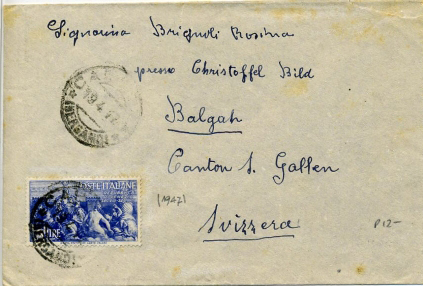 Signorina Brignoli Rosina
presso Christoffel Bild
Balgah
Canton S. Gallen
(1947)
Svizzera
P 12-
POSTE ITALIANE
LIRE
(BERGAMO)